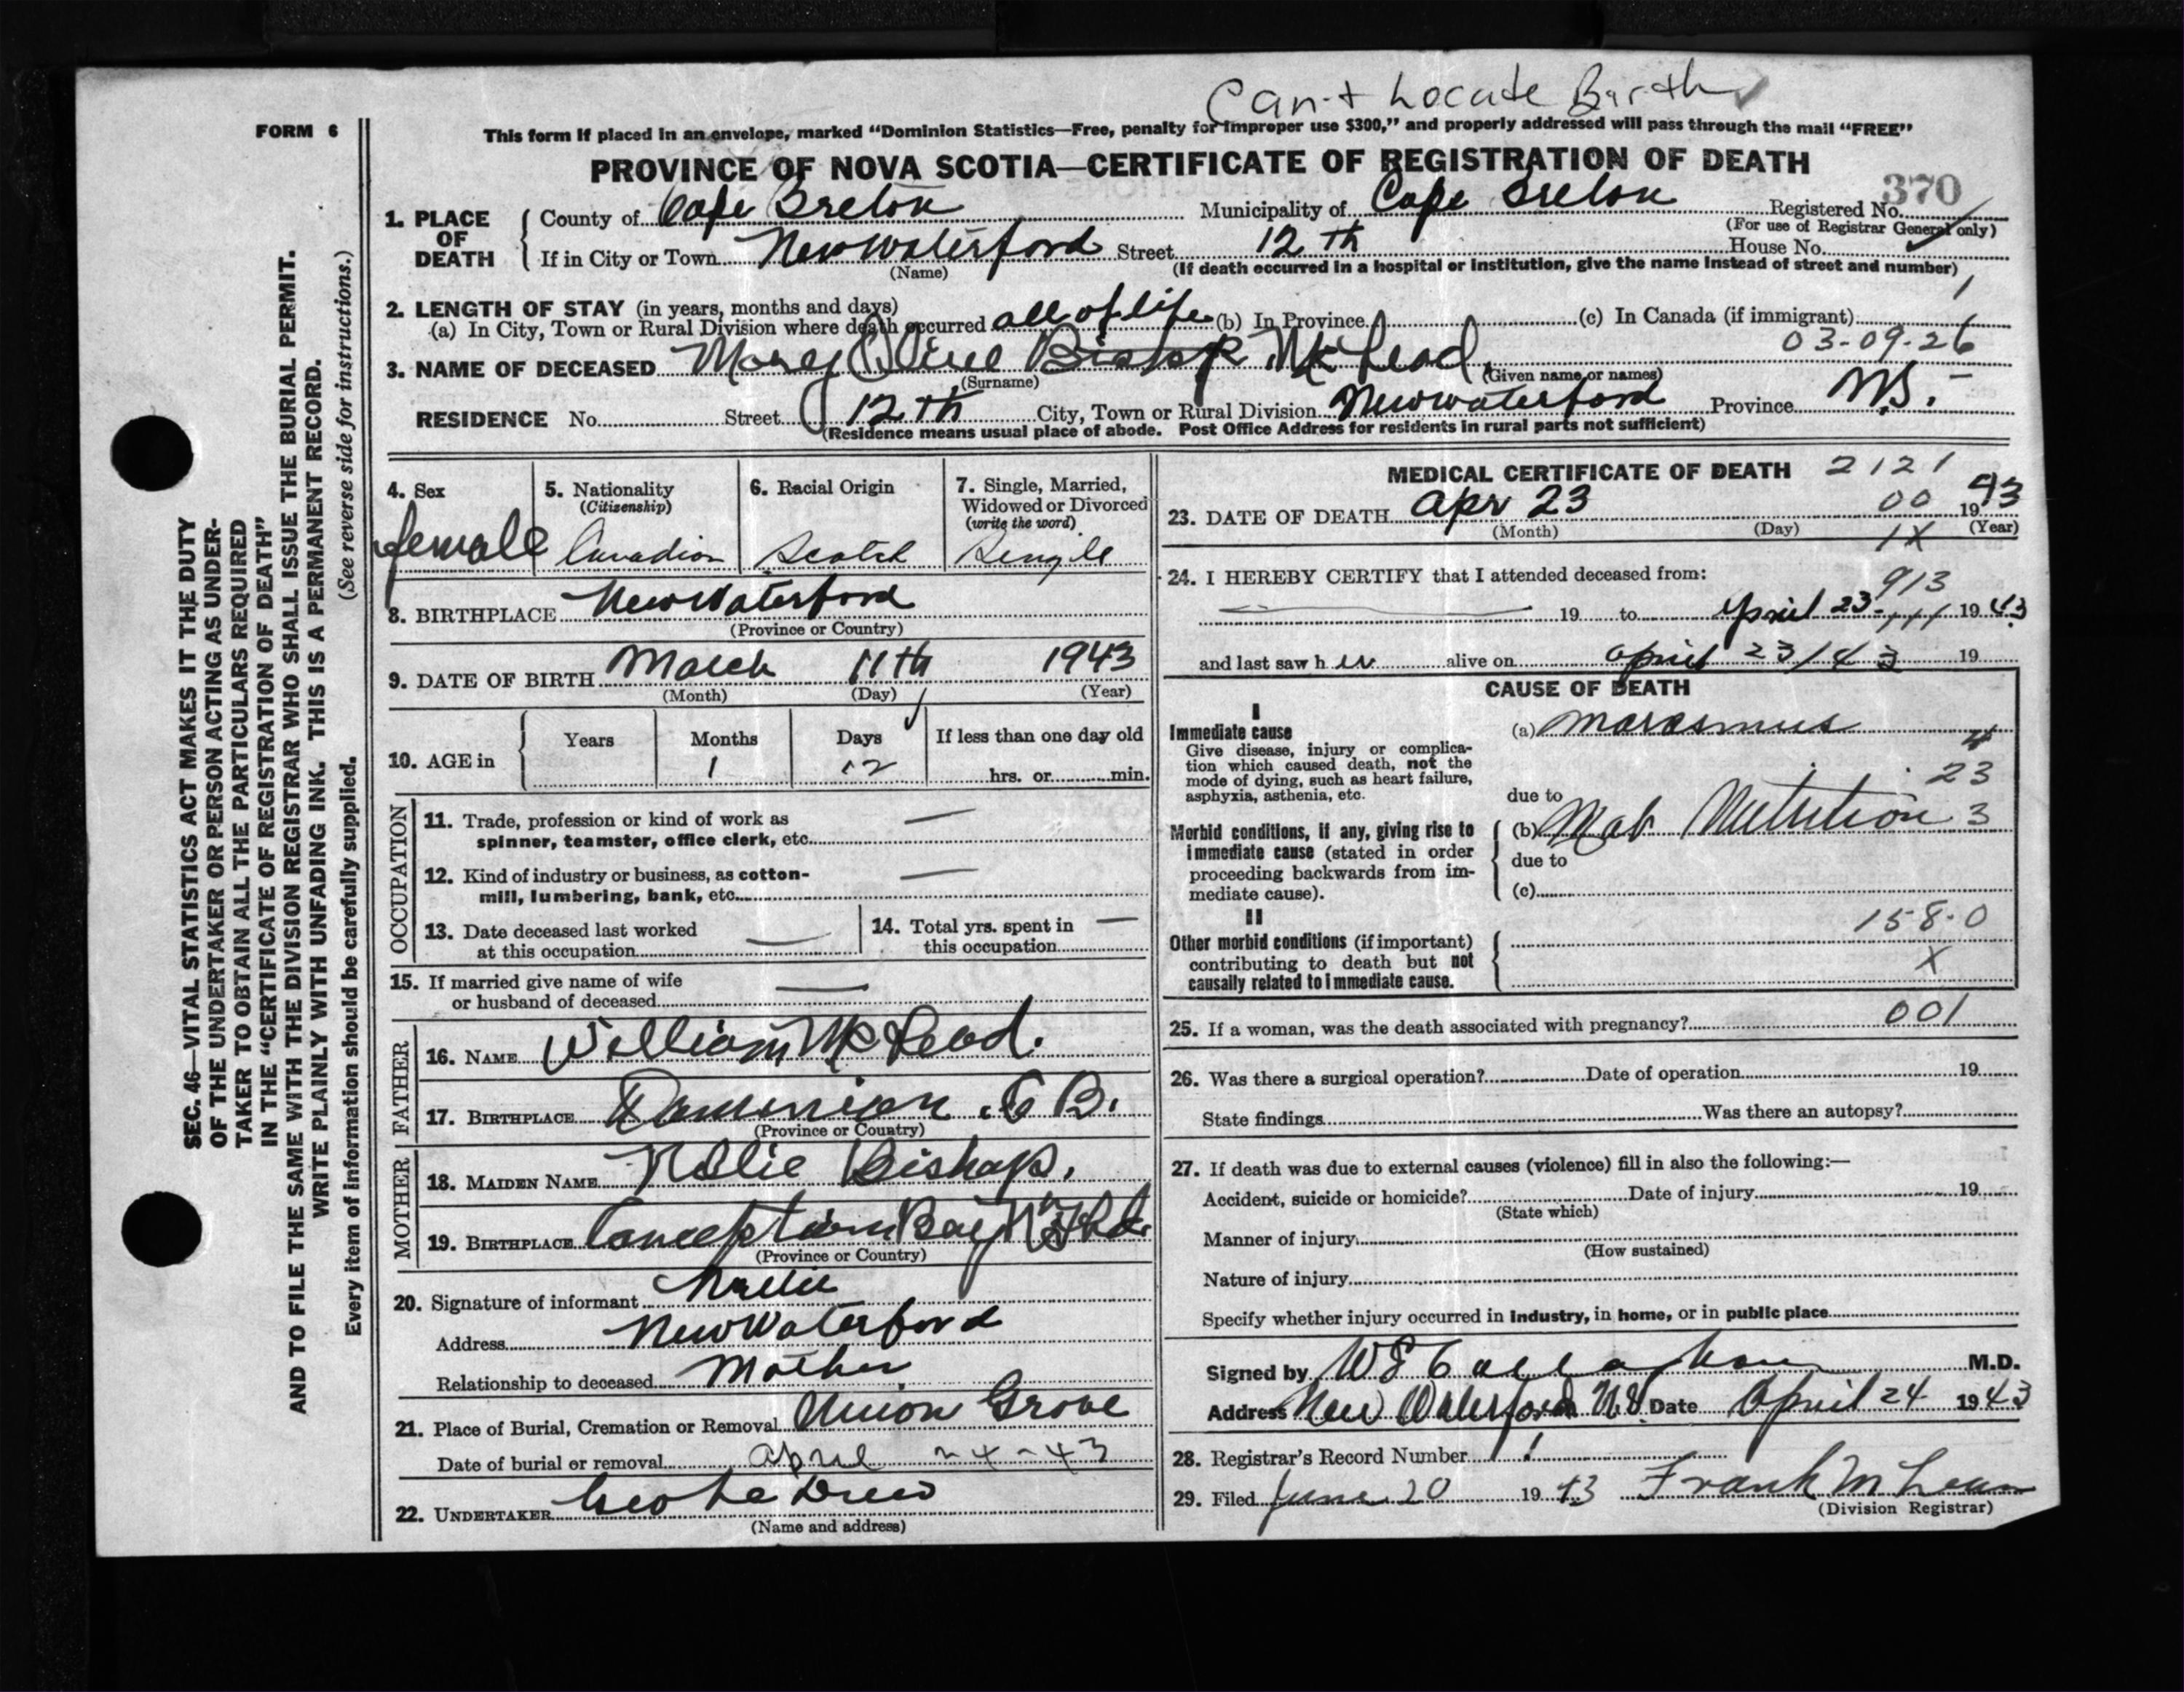 Can't Locate Barth
FORM 6
This form if placed in an envelope, marked "Dominion Statistics—Free, penalty for improper use $300," and properly addressed will pass through the mail "FREE"
PROVINCE OF NOVA SCOTIA—CERTIFICATE OF REGISTRATION OF DEATH
370
1. PLACE OF DEATH County of Cape Breton Municipality of Cape Breton Registered No.
(For use of Registrar General only)
If in City or Town New Waterford Street 12 Th House No.
(Name) (If death occurred in a hospital or institution, give the name instead of street and number)
2. LENGTH OF STAY (in years, months and days)
(a) In City, Town or Rural Division where death occurred all of life (b) In Province (c) In Canada (if immigrant)
03-09-26
3. NAME OF DECEASED Mary Olive Bishop McLeod
(Surname) (Given name or names)
RESIDENCE No. Street 12 Th City, Town or Rural Division New Waterford Province N.S.
(Residence means usual place of abode. Post Office Address for residents in rural parts not sufficient)
SEC. 46—VITAL STATISTICS ACT MAKES IT THE DUTY
OF THE UNDERTAKER OR PERSON ACTING AS UNDER-
TAKER TO OBTAIN ALL THE PARTICULARS REQUIRED
IN THE "CERTIFICATE OF REGISTRATION OF DEATH"
AND TO FILE THE SAME WITH THE DIVISION REGISTRAR WHO SHALL ISSUE THE BURIAL PERMIT.
WRITE PLAINLY WITH UNFADING INK. THIS IS A PERMANENT RECORD.
Every item of information should be carefully supplied. (See reverse side for instructions.)
4. Sex 5. Nationality (Citizenship) 6. Racial Origin 7. Single, Married, Widowed or Divorced (write the word)
female Canadian Scotch Single
8. BIRTHPLACE New Waterford
(Province or Country)
9. DATE OF BIRTH March 11th 1943
(Month) (Day) (Year)
10. AGE in Years Months Days If less than one day old
1 12 hrs. or min.
OCCUPATION
11. Trade, profession or kind of work as —
spinner, teamster, office clerk, etc.
12. Kind of industry or business, as cotton- —
mill, lumbering, bank, etc.
13. Date deceased last worked at this occupation — 14. Total yrs. spent in this occupation —
15. If married give name of wife
or husband of deceased —
FATHER
16. NAME William McLeod.
17. BIRTHPLACE Dominion. C B.
(Province or Country)
MOTHER
18. MAIDEN NAME Nellie Bishop.
19. BIRTHPLACE Conception Bay Nfld.
(Province or Country)
20. Signature of informant Nellie
Address New Waterford
Relationship to deceased Mother
21. Place of Burial, Cremation or Removal Union Grove
Date of burial or removal April 24-43
22. UNDERTAKER Drew
(Name and address)
MEDICAL CERTIFICATE OF DEATH 2121
23. DATE OF DEATH Apr 23 00 1943
(Month) (Day) 1X (Year)
24. I HEREBY CERTIFY that I attended deceased from:
913
19 to April 23 111 1943
and last saw her alive on april 23/43 19
CAUSE OF DEATH
I
Immediate cause (a) marasmus
Give disease, injury or complica-
tion which caused death, not the
mode of dying, such as heart failure,
asphyxia, asthenia, etc.
4
23
due to
3
Morbid conditions, if any, giving rise to (b) Mal Nutrition
immediate cause (stated in order due to
proceeding backwards from im-
mediate cause). (c)
II
158.0
Other morbid conditions (if important)
contributing to death but not X
causally related to immediate cause.
25. If a woman, was the death associated with pregnancy? 001
26. Was there a surgical operation? Date of operation 19
State findings Was there an autopsy?
27. If death was due to external causes (violence) fill in also the following:—
Accident, suicide or homicide? Date of injury 19
(State which)
Manner of injury
(How sustained)
Nature of injury
Specify whether injury occurred in industry, in home, or in public place
Signed by W S Callaghan M.D.
Address New Waterford N.S. Date April 24 1943
28. Registrar's Record Number 1
29. Filed June 20 1943 Frank McLean
(Division Registrar)